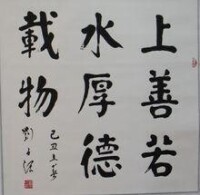 上善若
水厚德
載物
己丑